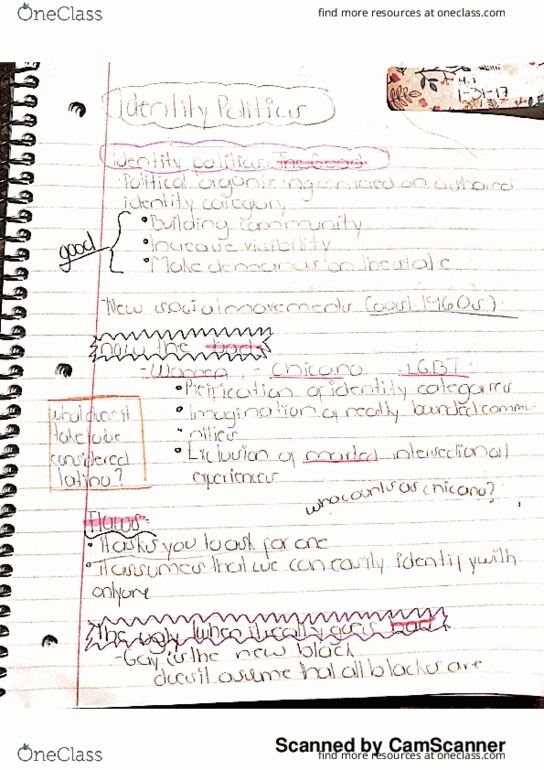 OneClass
find more resources at oneclass.com
Identity Politics
identity politics: the good
Political organizing centered on a shared
identity category
good
• Building community
• Increase visibility
• Make demands on the state
-New social movements (post 1960s)
now the bad:
-Women - Chicano LGBT
• Reification of identity categories
• Imagination of neatly bounded commu-
nities
• Exclusion of marked intersectional
experiences
what does it
take to be
considered
latino?
who counts as chicano?
Flaws:
• It asks you to ask for one
• It assumes that we can easily identify with
only one
The ugly (when it really goes bad)
-Gay is the new black
does it assume that all blacks are
Scanned by CamScanner
OneClass
find more resources at oneclass.com